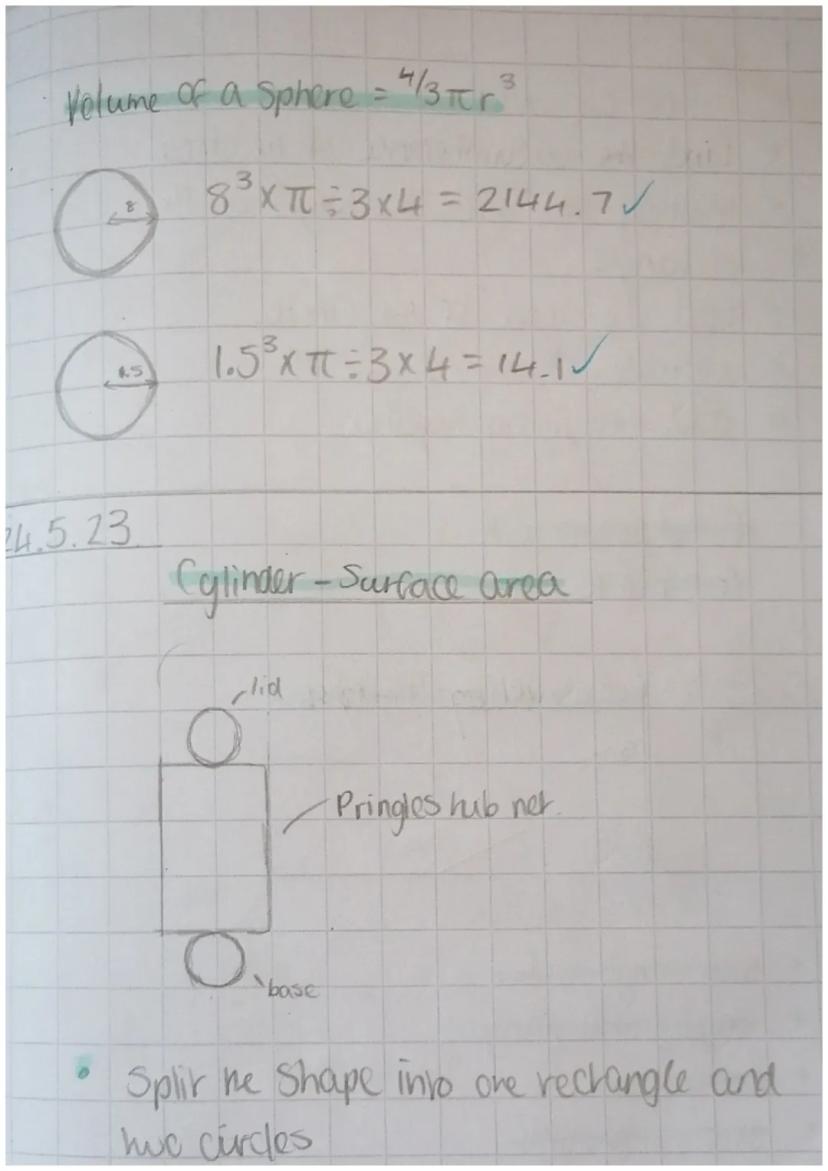 Volume of a sphere = 4/3πr³
8
8³ × π ÷ 3 × 4 = 2144.7 ✓
1.5
1.5³ × π ÷ 3 × 4 = 14.1 ✓
24.5.23
Cylinder - Surface area
lid
Pringles tub net.
base
• Split the shape into one rectangle and
two circles